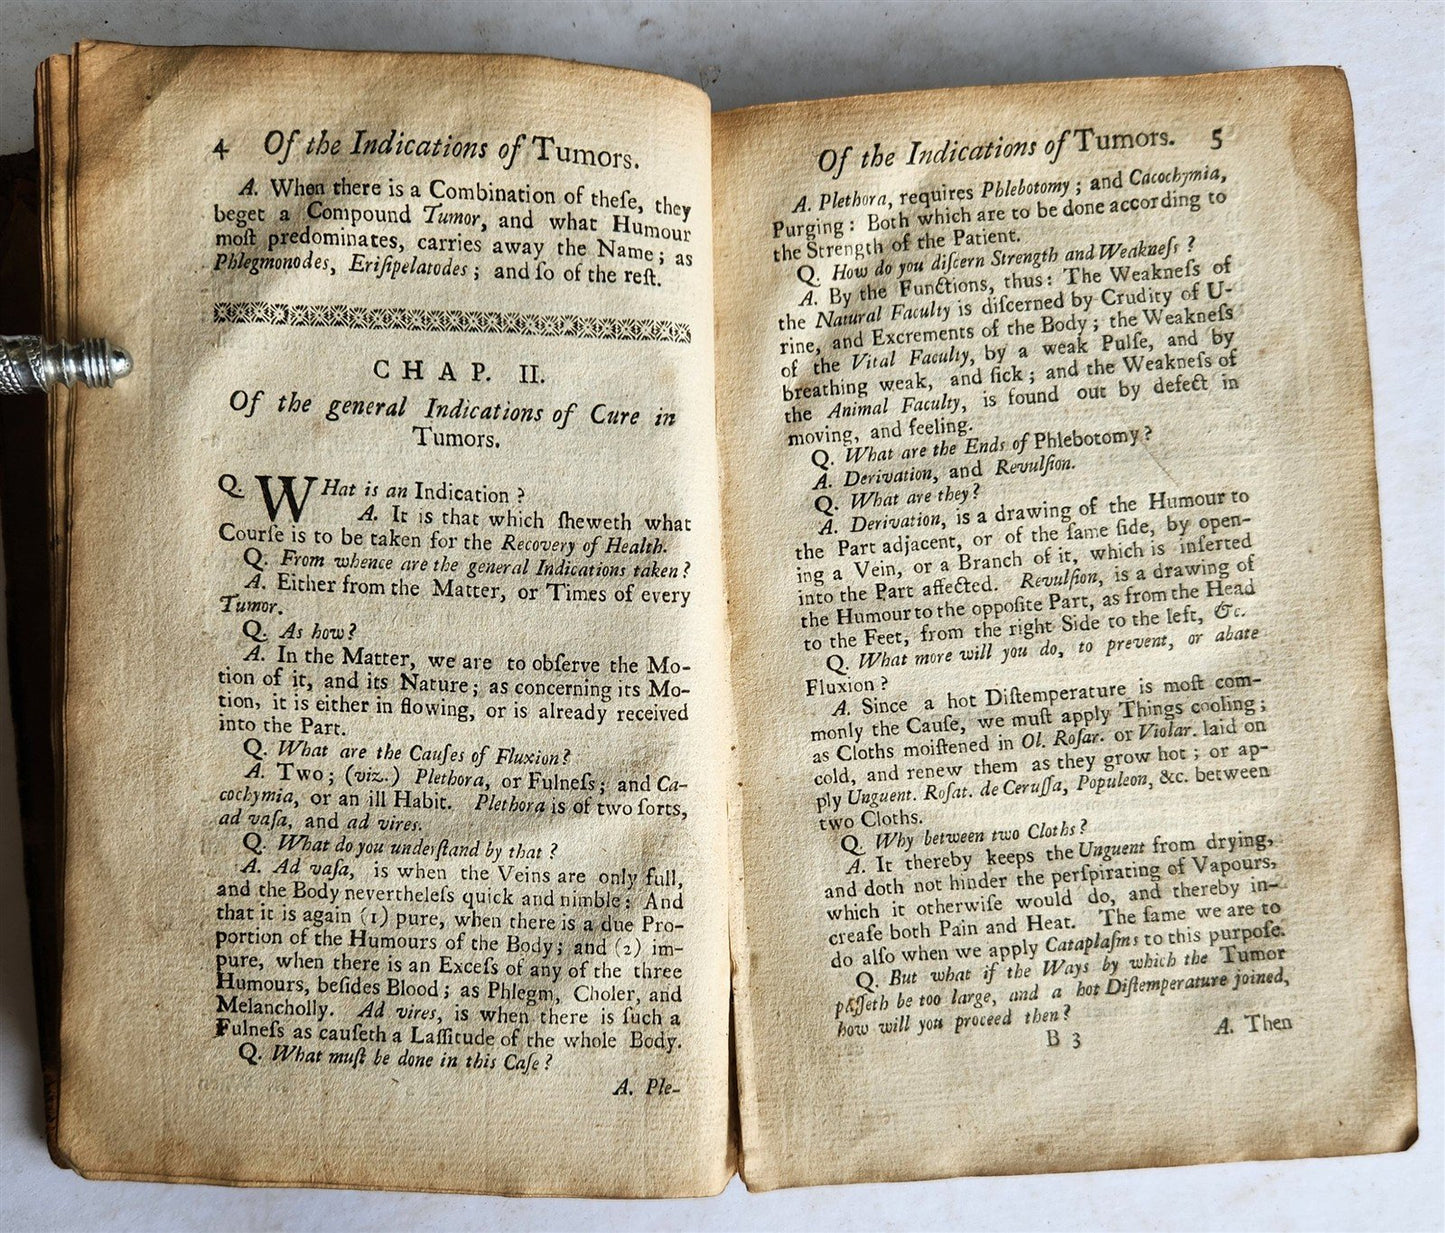 4 Of the Indications of Tumors.
A. When there is a Combination of theſe, they
beget a Compound Tumor, and what Humour
moſt predominates, carries away the Name; as
Phlegmonodes, Eriſipelatodes; and ſo of the reſt.
CHAP. II.
Of the general Indications of Cure in
Tumors.
Q. WHat is an Indication?
A. It is that which ſheweth what
Courſe is to be taken for the Recovery of Health.
Q. From whence are the general Indications taken?
A. Either from the Matter, or Times of every
Tumor.
Q. As how?
A. In the Matter, we are to obſerve the Mo-
tion of it, and its Nature; as concerning its Mo-
tion, it is either in flowing, or is already received
into the Part.
Q. What are the Cauſes of Fluxion?
A. Two; (viz.) Plethora, or Fulneſs; and Ca-
cochymia, or an ill Habit. Plethora is of two ſorts,
ad vaſa, and ad vires.
Q. What do you underſtand by that?
A. Ad vaſa, is when the Veins are only full,
and the Body nevertheleſs quick and nimble: And
that it is again (1) pure, when there is a due Pro-
portion of the Humours of the Body; and (2) im-
pure, when there is an Exceſs of any of the three
Humours, beſides Blood; as Phlegm, Choler, and
Melancholly. Ad vires, is when there is ſuch a
Fulneſs as cauſeth a Laſſitude of the whole Body.
Q. What muſt be done in this Caſe?
A. Ple-
Of the Indications of Tumors. 5
A. Plethora, requires Phlebotomy; and Cacochymia,
Purging: Both which are to be done according to
the Strength of the Patient.
Q. How do you diſcern Strength and Weakneſs?
A. By the Functions, thus: The Weakneſs of
the Natural Faculty is diſcerned by Crudity of U-
rine, and Excrements of the Body; the Weakneſs
of the Vital Faculty, by a weak Pulſe, and by
breathing weak, and ſick; and the Weakneſs of
the Animal Faculty, is found out by defect in
moving, and feeling.
Q. What are the Ends of Phlebotomy?
A. Derivation, and Revulſion.
Q. What are they?
A. Derivation, is a drawing of the Humour to
the Part adjacent, or of the ſame ſide, by open-
ing a Vein, or a Branch of it, which is inſerted
into the Part affected. Revulſion, is a drawing of
the Humour to the oppoſite Part, as from the Head
to the Feet, from the right Side to the left, &c.
Q. What more will you do, to prevent, or abate
Fluxion?
A. Since a hot Diſtemperature is moſt com-
monly the Cauſe, we muſt apply Things cooling;
as Cloths moiſtened in Ol. Roſar. or Violar. laid on
cold, and renew them as they grow hot; or ap-
ply Unguent. Roſat. de Ceruſſa, Populeon, &c. between
two Cloths.
Q. Why between two Cloths?
A. It thereby keeps the Unguent from drying,
and doth not hinder the perſpirating of Vapours,
which it otherwiſe would do, and thereby in-
creaſe both Pain and Heat. The ſame we are to
do alſo when we apply Cataplaſms to this purpoſe.
Q. But what if the Ways by which the Tumor
paſſeth be too large, and a hot Diſtemperature joined,
how will you proceed then?
B 3 A. Then